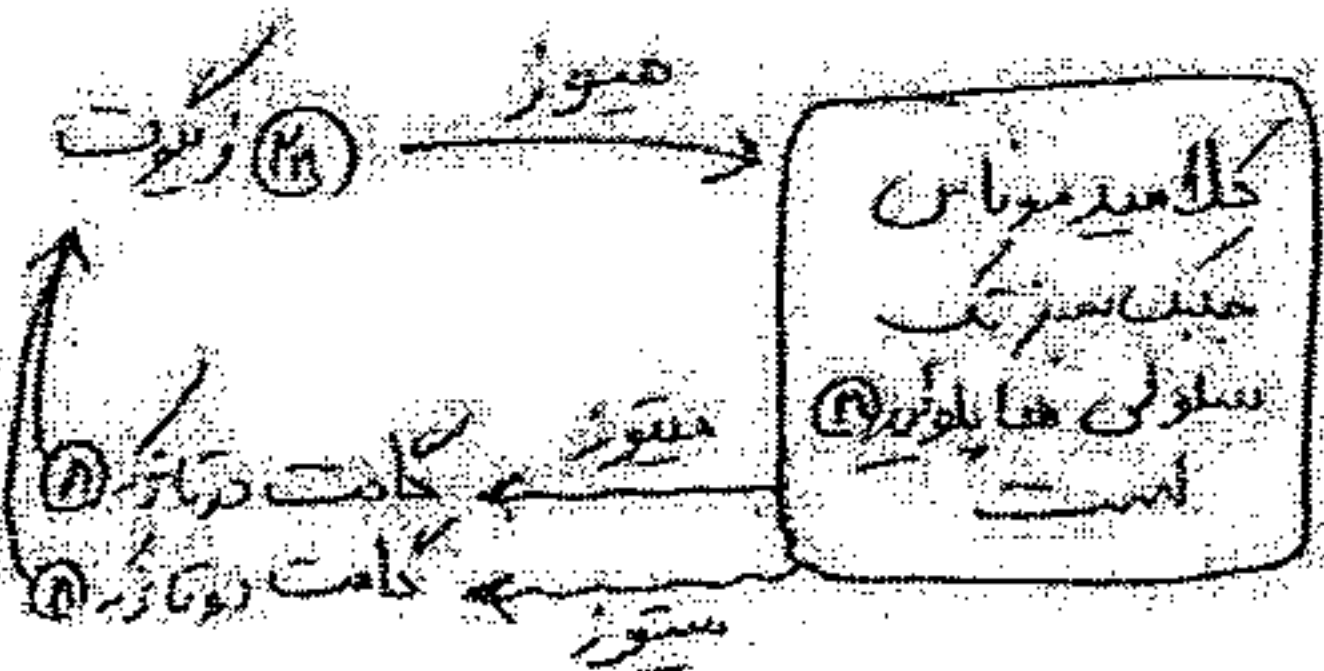 میوز
زیگوت 2n
کلامیدوموناس
جلبک سبز تک
سلولی هاپلوئید n
است
میتوز
گامت دوتاژک n
گامت دوتاژک n
میتوز